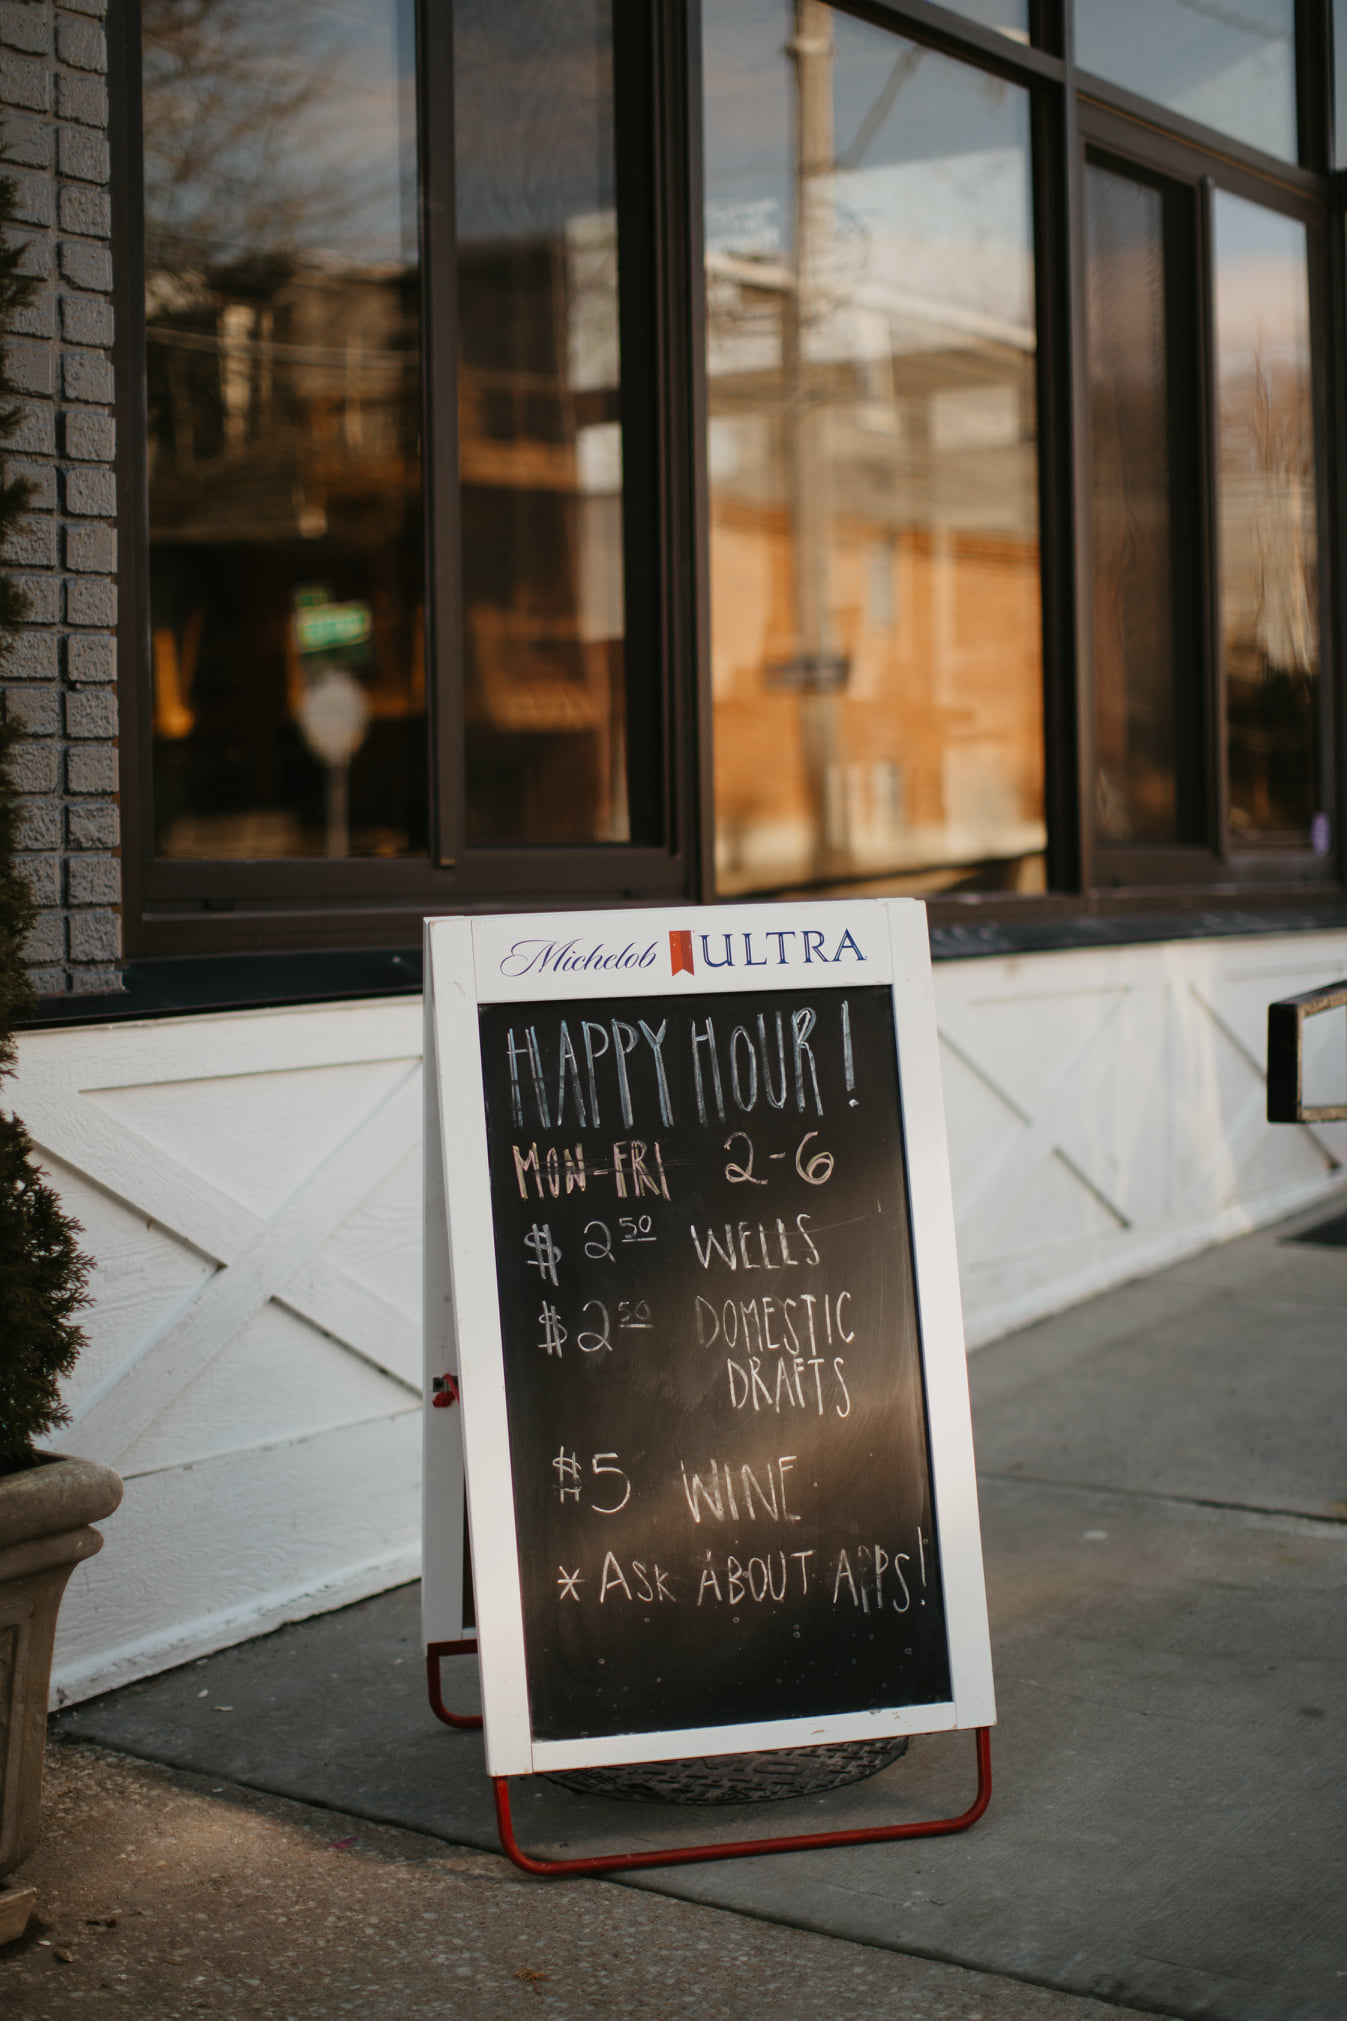 Michelob ULTRA
HAPPY HOUR!
MON-FRI 2-6
$2.50 WELLS
$2.50 DOMESTIC
DRAFTS
$5 WINE
* ASK ABOUT APPS!